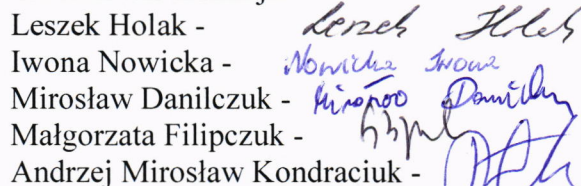 Leszek Holak - Leszek Holak
Iwona Nowicka - Nowicka Iwona
Mirosław Danilczuk - Mirosław
Małgorzata Filipczuk -
Andrzej Mirosław Kondraciuk -